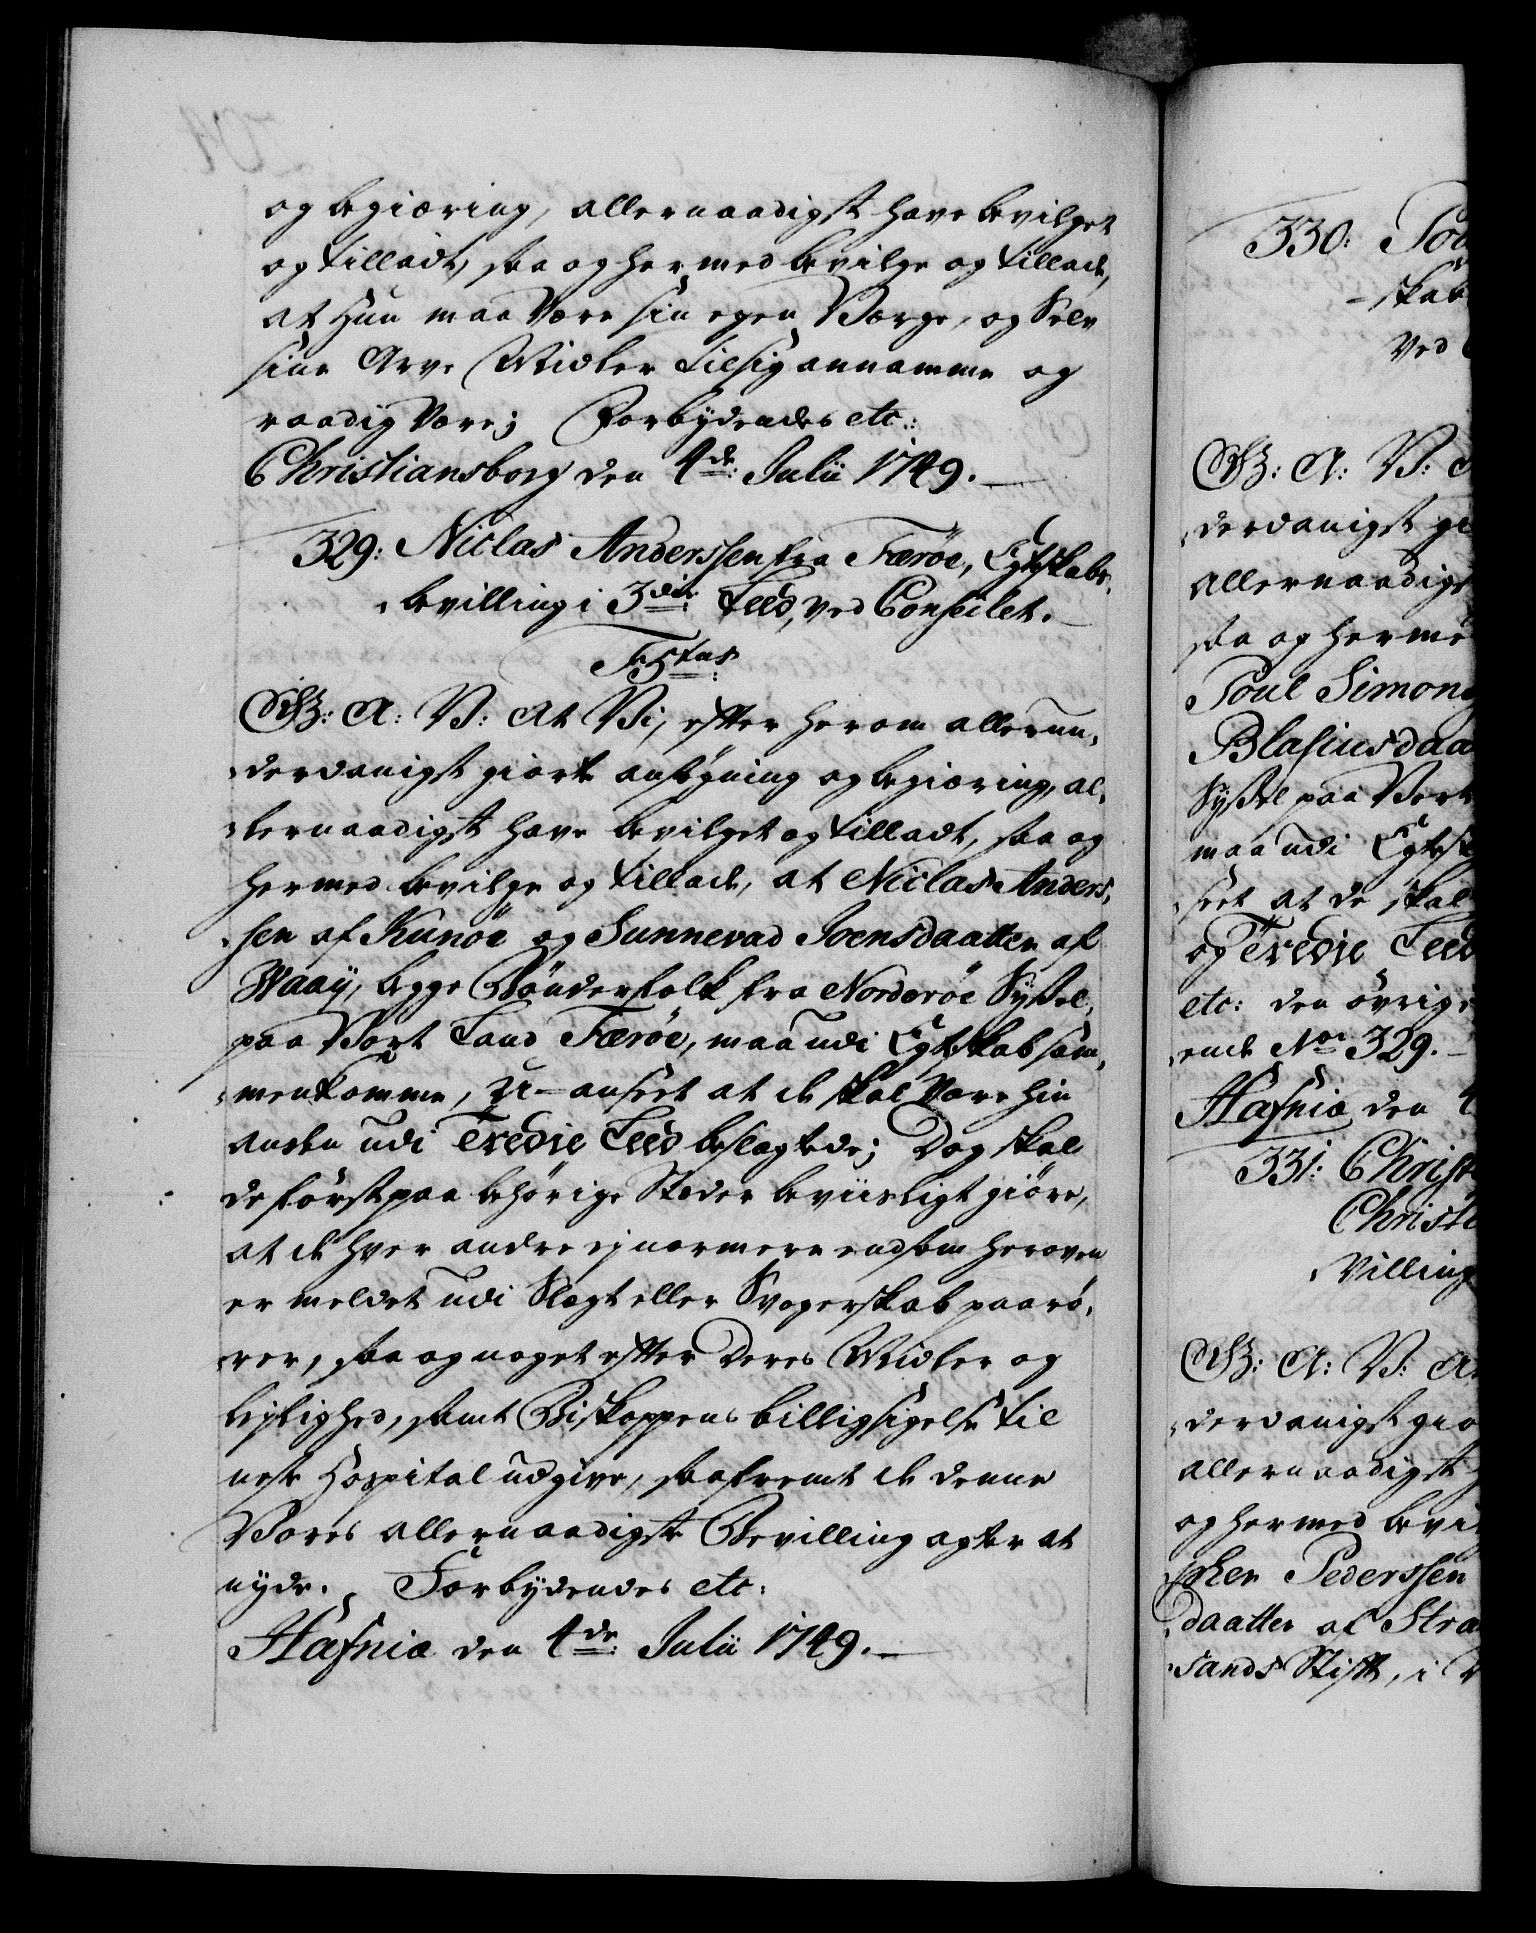 og begiæring, allernaadigst have bevilget
og tilladt, saa og hermed bevilge og tillade,
at Hun maa være sin egen Værge, og Selv
sine Arve Midler til sig annamme og
raadig være; Forbydendes etc:
Christiansborg den 4de: Julii 1749.
329: Niclas Anderssen fra Færöe, Egteskabs
bevilling i 3die: Leed, ved Conseilet.
F5tus
G: A: V: At Vi, efter herom allerun-
derdanigst giorte ansøgning og begiæring, al-
lernaadigst have bevilget og tilladt, saa og
hermed bevilge og tillade, at Niclas Anders-
sen af Kunöe og Sunnevad Joensdaatter af
Waay, begge Bönderfolk fra Norderöe Syssel,
paa Vort Land Færöe, maa udi Egteskab sam-
menkomme, U-anseet at de skal være hin
anden udi Tredie Leed beslægtede; Dog skal
de först paa behörige Stæder beviisligt giöre,
at de hver andre ej nærmere end som heroven
er meldet udi Slægt eller Svogerskab paarö-
rer, saa og noget efter Deres Midler og
lejlighed, samt Biskoppens billigsigelse til
neste Hospital udgive, saafremt de denne
Vores allernaadigste Bevilling agter at
nyde. Forbydendes etc:
Hafniæ den 4de: Julii 1749.
330:
skab
ved
G: A: V:
derdanigst
allernaadigst
saa og herme
Poul Simons
Blasiusdaa
Syssel paa Vort
maa udi Egtesk
seet at de skal
og Tredie Leed
etc: den övrige
ende No 329.
Hafniæ den 4
331: Christ
Christi
villing
G: A: V: At
derdanigst gio
allernaadigst
og hermed bevi
Pederssen
daatter af Stra
sands Stift, i